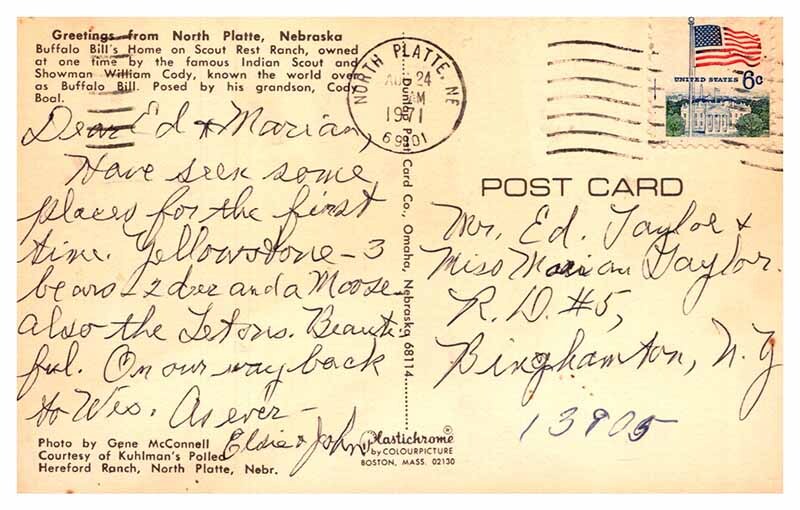 Greetings from North Platte, Nebraska
Buffalo Bill's Home on Scout Rest Ranch, owned
at one time by the famous Indian Scout and
Showman William Cody, known the world over
as Buffalo Bill. Posed by his grandson, Cody
Boal.
Dear Ed & Marian,
Have seen some
places for the first
time. Yellowstone - 3
bears - 2 deer and a Moose
also the Tetons. Beauti-
ful. On our way back
to Wis. As ever -
Elsie & John
Photo by Gene McConnell
Courtesy of Kuhlman's Polled
Hereford Ranch, North Platte, Nebr.
Post Card Co., Omaha, Nebraska 68114
Plastichrome ®
by COLOURPICTURE
BOSTON, MASS. 02130
NORTH PLATTE, NE
AUG 24
AM
1971
69101
UNITED STATES 6c
POST CARD
Mr. Ed. Taylor &
Miss Marian Taylor.
R.D. #5,
Binghamton, N.Y
13905